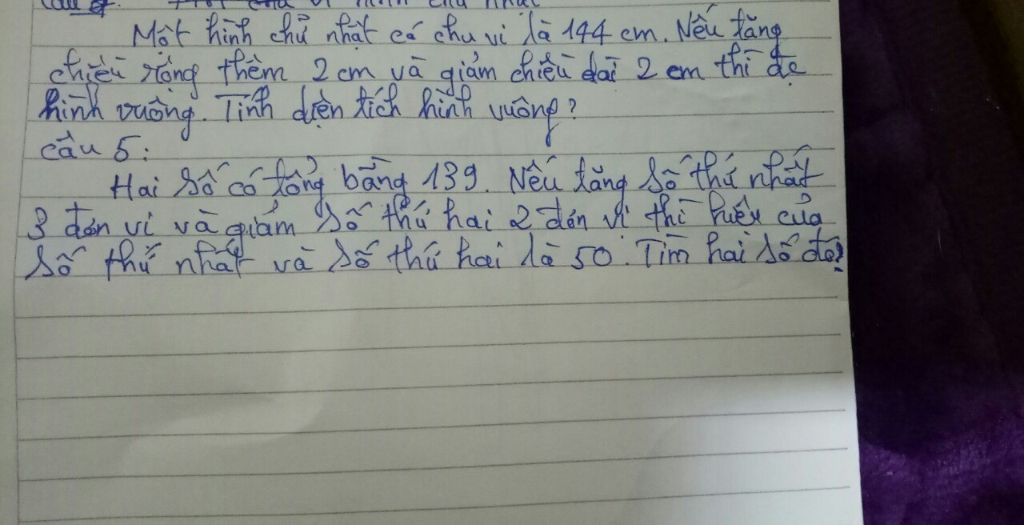 Một hình chữ nhật có chu vi là 144 cm. Nếu tăng
chiều rộng thêm 2 cm và giảm chiều dài 2 cm thì đc
hình vuông. Tính diện tích hình vuông?
câu 5:
Hai số có tổng bằng 139. Nếu tăng số thứ nhất
3 đơn vị và giảm số thứ hai 2 đơn vị thì hiệu của
số thứ nhất và số thứ hai là 50. Tìm hai số đó?